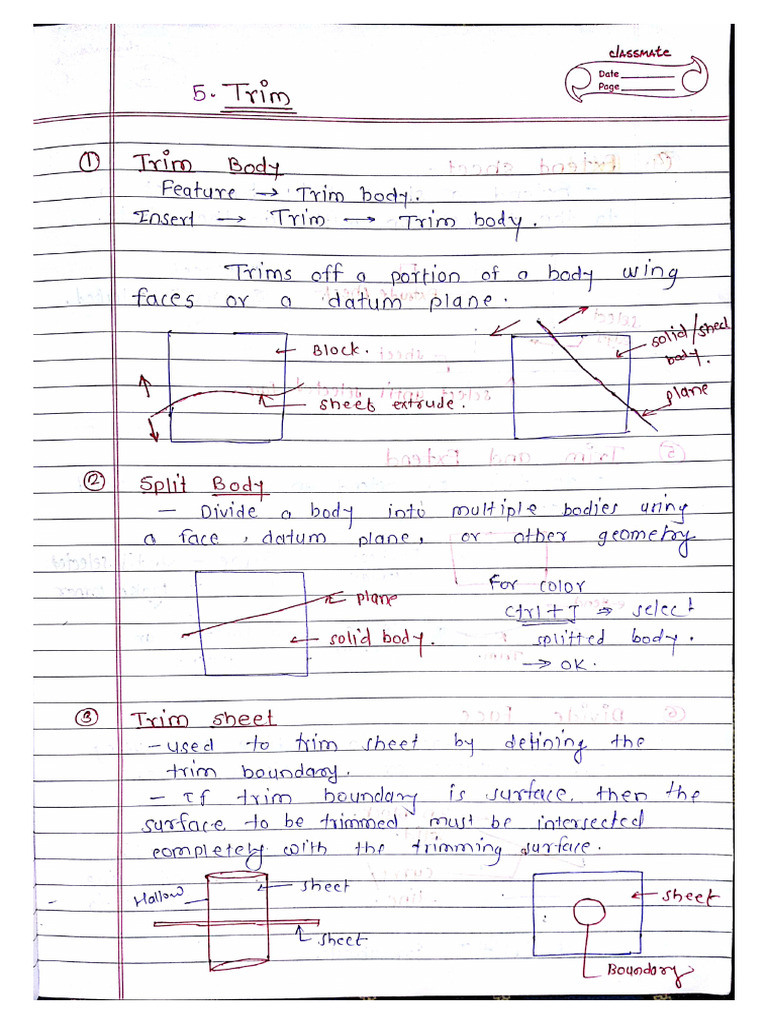 classmate
Date
Page
5. Trim
① Trim Body
Feature → Trim body.
Insert → Trim → Trim body.
Trims off a portion of a body using
faces or a datum plane.
Block.
sheet extrude.
solid/sheet
body.
plane
② Split Body
- Divide a body into multiple bodies using
a face, datum plane, or other geometry
plane
solid body.
For color
Ctrl+J ⇒ select
splitted body.
→ OK.
③ Trim sheet
- used to trim sheet by defining the
trim boundary.
- If trim boundary is surface, then the
surface to be trimmed must be intersected
completely with the trimming surface.
Hallow
sheet
sheet
sheet
Boundary